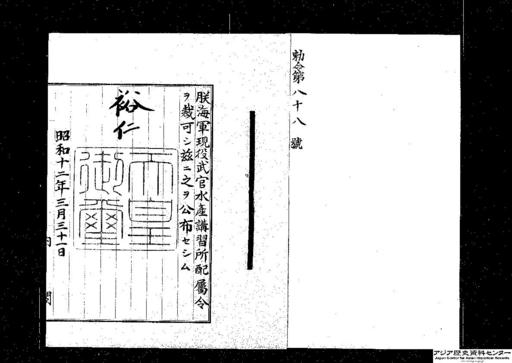 勅令第八十八號
朕海軍現役武官水産講習所配屬令
ヲ裁可シ茲ニ之ヲ公布セシム
裕仁
天皇御璽
昭和十二年三月三十一日
内閣
アジア歴史資料センター
Japan Center for Asian Historical Records